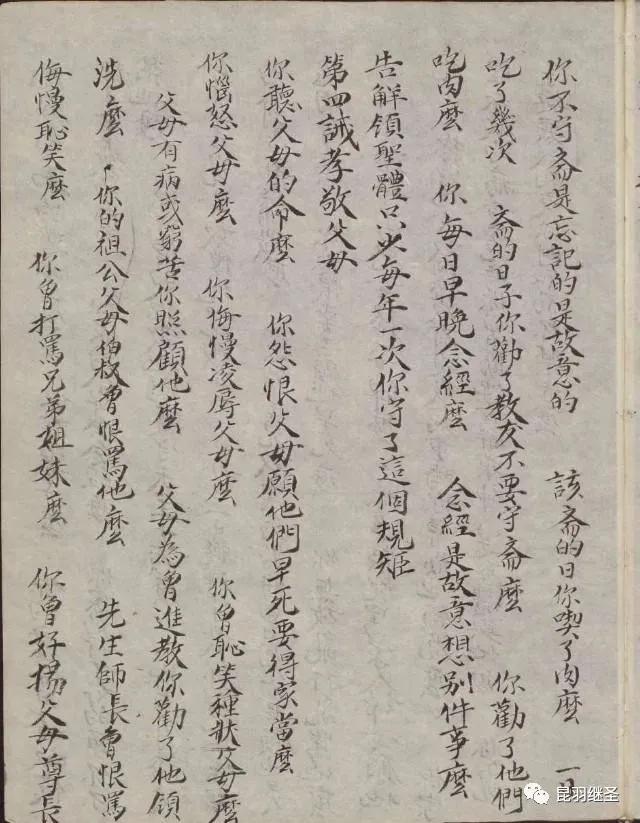 你不守斋是忘記的是故意的 該斋的日你喫了肉麽 一日
吃了幾次 斋的日子你勸了教友不要守斋麽 你勸了他們
吃肉麽 你每日早晚念經麽 念經是故意想别件事麽
告解領聖體只少每年一次你守了這個規矩
第四誡孝敬父母
你聽父母的命麽 你怨恨父母願他們早死要得家當麽
你惱怒父母麽 你侮慢凌辱父母麽 你曾恥笑種狀父母麽
父母有病或窮苦你照顧他麽 父母為曾進教你勸了他領
洗麽 你的祖公父母伯叔曾恨罵他麽 先生師長曾恨罵
侮慢恥笑麽 你曾打罵兄弟姐妹麽 你曾好揚父母尊長
昆羽继圣